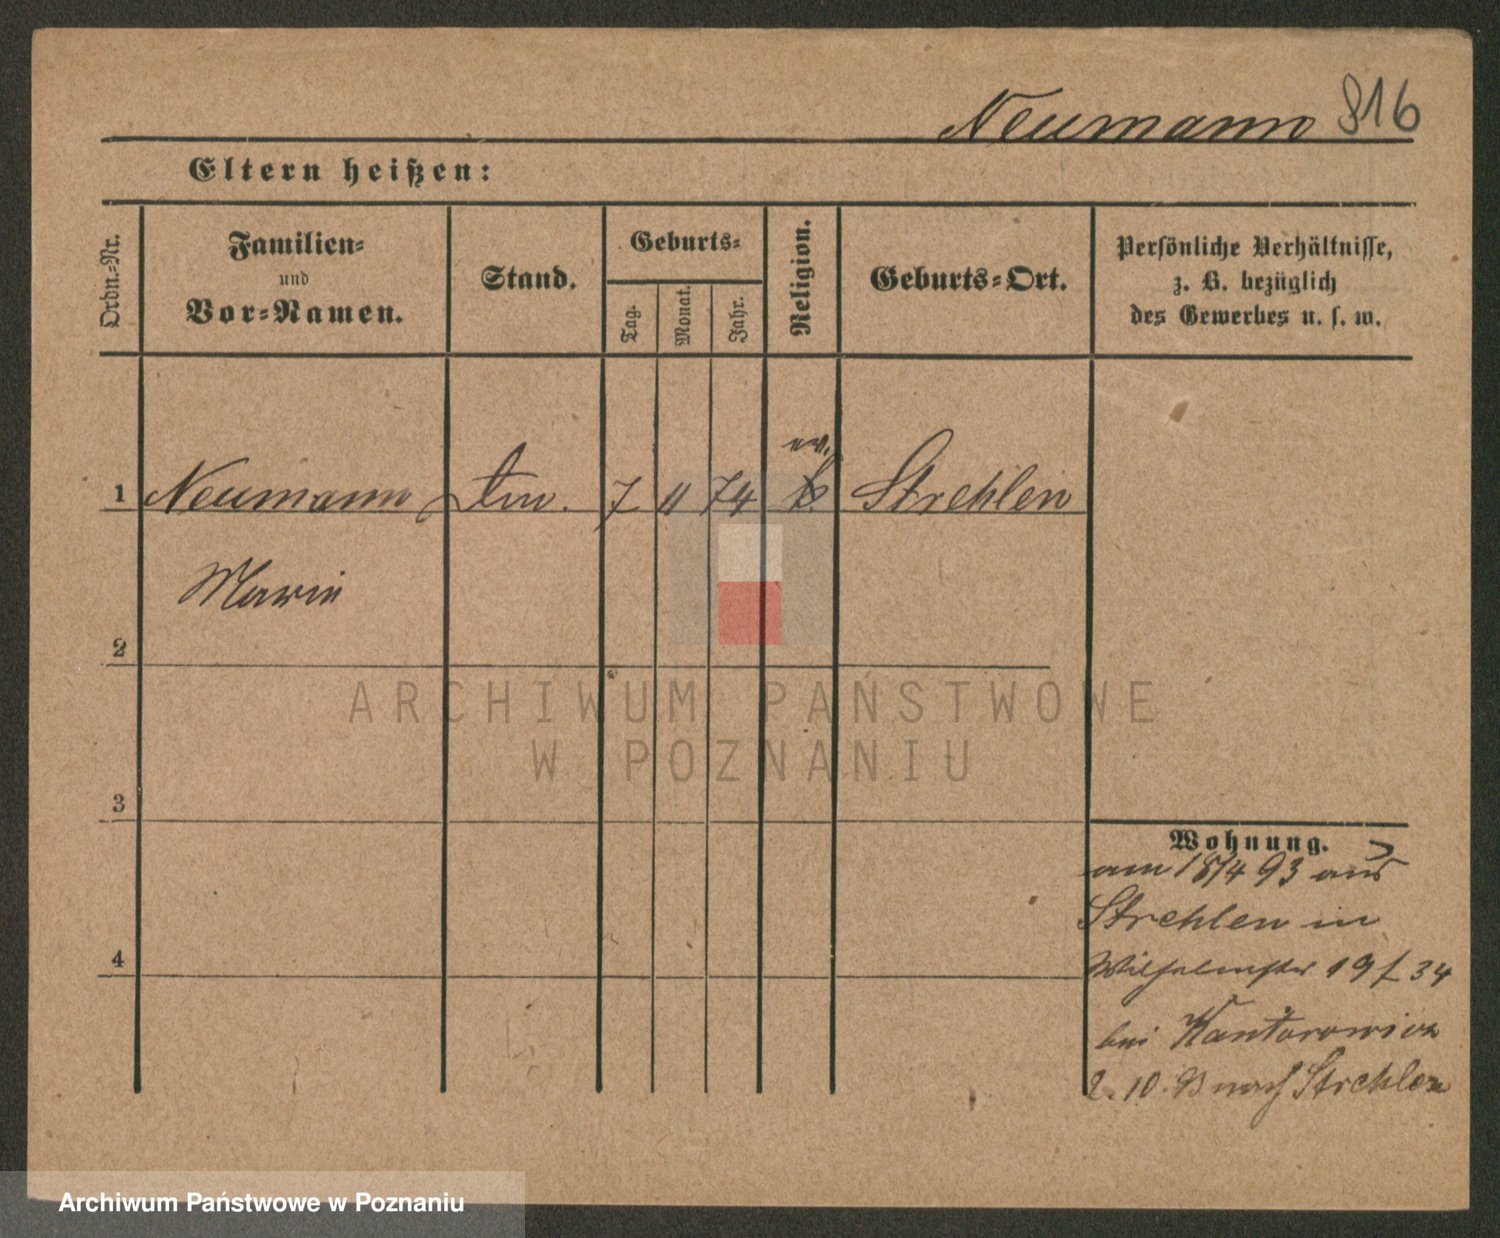 Neumann 816
Eltern heißen:
Ordn.=Nr.
Familien=
und
Vor=Namen.
Stand.
Geburts=
Tag.
Monat.
Jahr.
Religion.
Geburts=Ort.
Persönliche Verhältnisse,
z. B. bezüglich
des Gewerbes u. s. w.
ev.
1 Neumann 7 11 74 Strehlen
Marie
2
3
4
Wohnung.
am 18/4 93 aus
Strehlen in
Wilhelmstr 19 34
bei Kantorowicz
2. 10. 93 nach Strehlen
ARCHIWUM PAŃSTWOWE
W POZNANIU
Archiwum Państwowe w Poznaniu